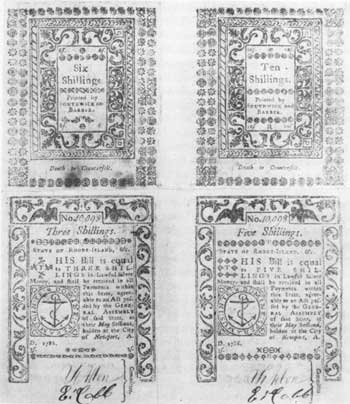 Six
Shillings.
Printed by
SOUTHWICK AND
BARBER.
Death to Counterfeit.
Ten
Shillings.
Printed by
SOUTHWICK AND
BARBER.
Death to Counterfeit.
No. 10,098
Three Shillings.
STATE OF RHODE-ISLAND, &c.
THIS Bill is equal
to THREE SHIL-
LINGS in Lawful Silver
Money, and shall be received in all
Payments within
this State, agree-
able to an Act pas-
sed by the GENE-
RAL ASSEMBLY
of said State, at
their May Session,
holden at the City
of Newport, A.
D. 1786.
E. Cobb
No. 10,098
Five Shillings.
STATE OF RHODE-ISLAND, &c.
THIS Bill is equal
to FIVE SHIL-
LINGS in Lawful Silver
Money, and shall be received in all
Payments within
this State, agree-
able to an Act pas-
sed by the GENE-
RAL ASSEMBLY
of said State, at
their May Session,
holden at the City
of Newport, A.
D. 1786.
E. Cobb